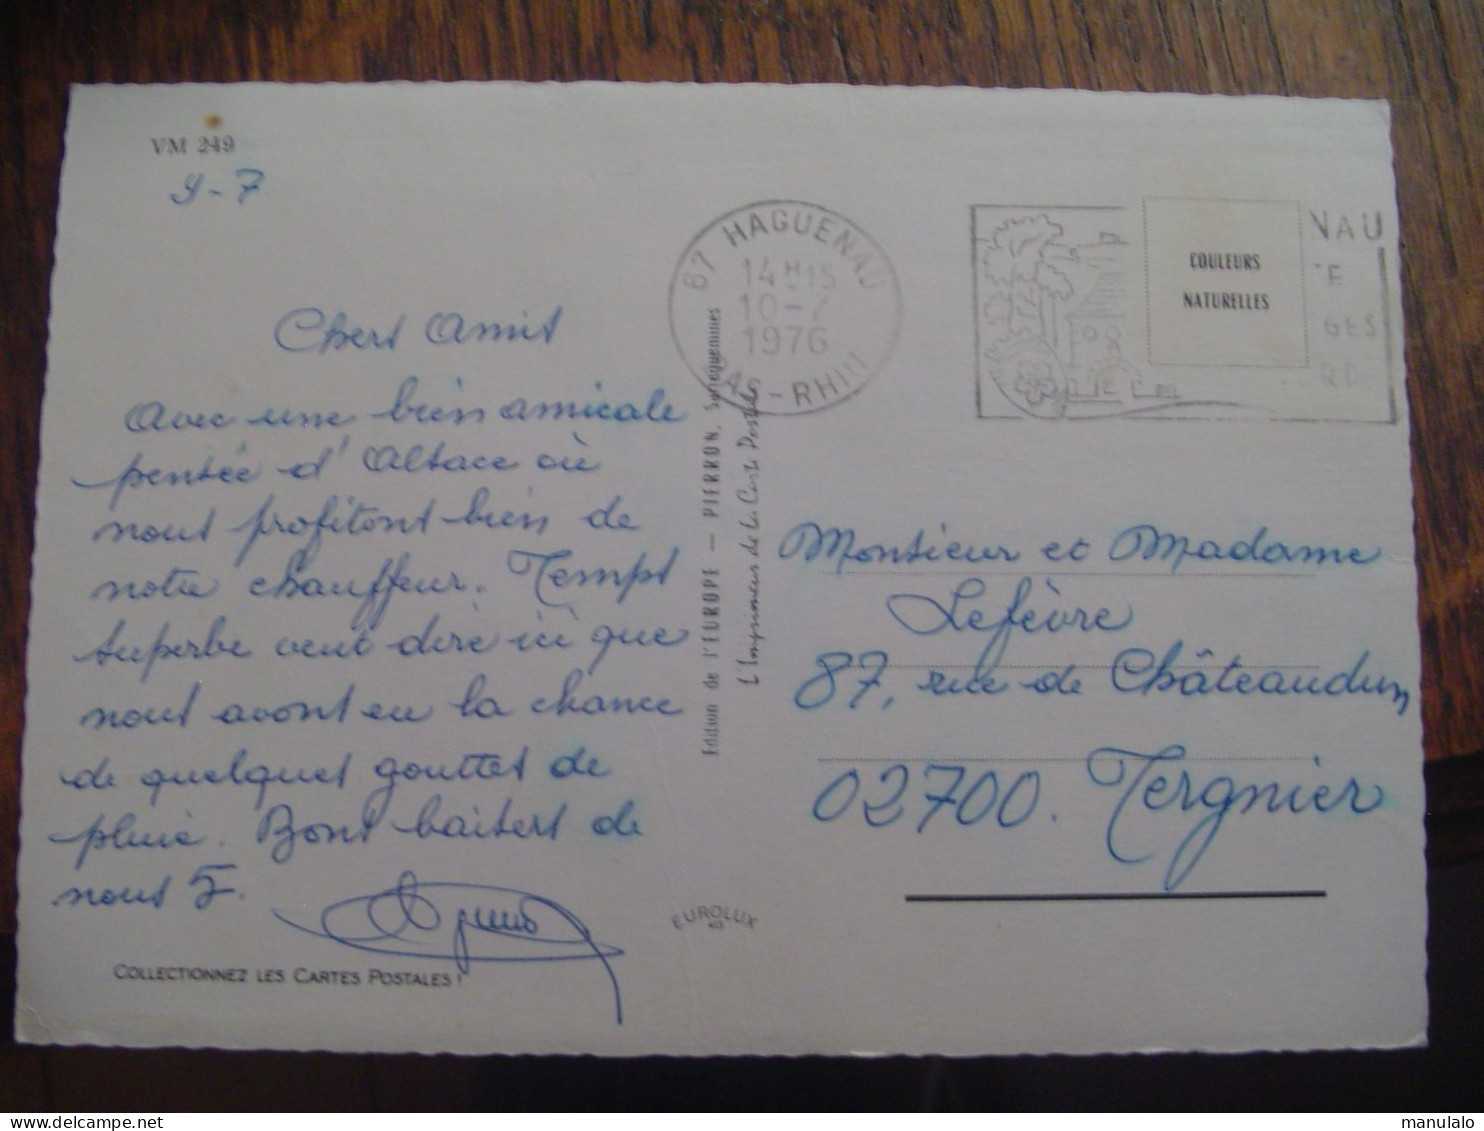 VM 249
9-7
Chers Amis
Avec une bien amicale
pensée d'Alsace où
nous profitons bien de
notre chauffeur. Temps
superbe veut dire ici que
nous avons eu la chance
de quelques gouttes de
pluie. Bons baisers de
nous 5.
COLLECTIONNEZ LES CARTES POSTALES !
Edition de l'EUROPE — PIERRON, Sarreguemines
L'Imprimeur de la Carte Postale
EUROLUX
67 HAGUENAU
14H15
10-7
1976
BAS-RHIN
NAU
TE
GES
RD
COULEURS
NATURELLES
Monsieur et Madame
Lefèvre
87, rue de Châteaudun
02700. Tergnier
manulalo